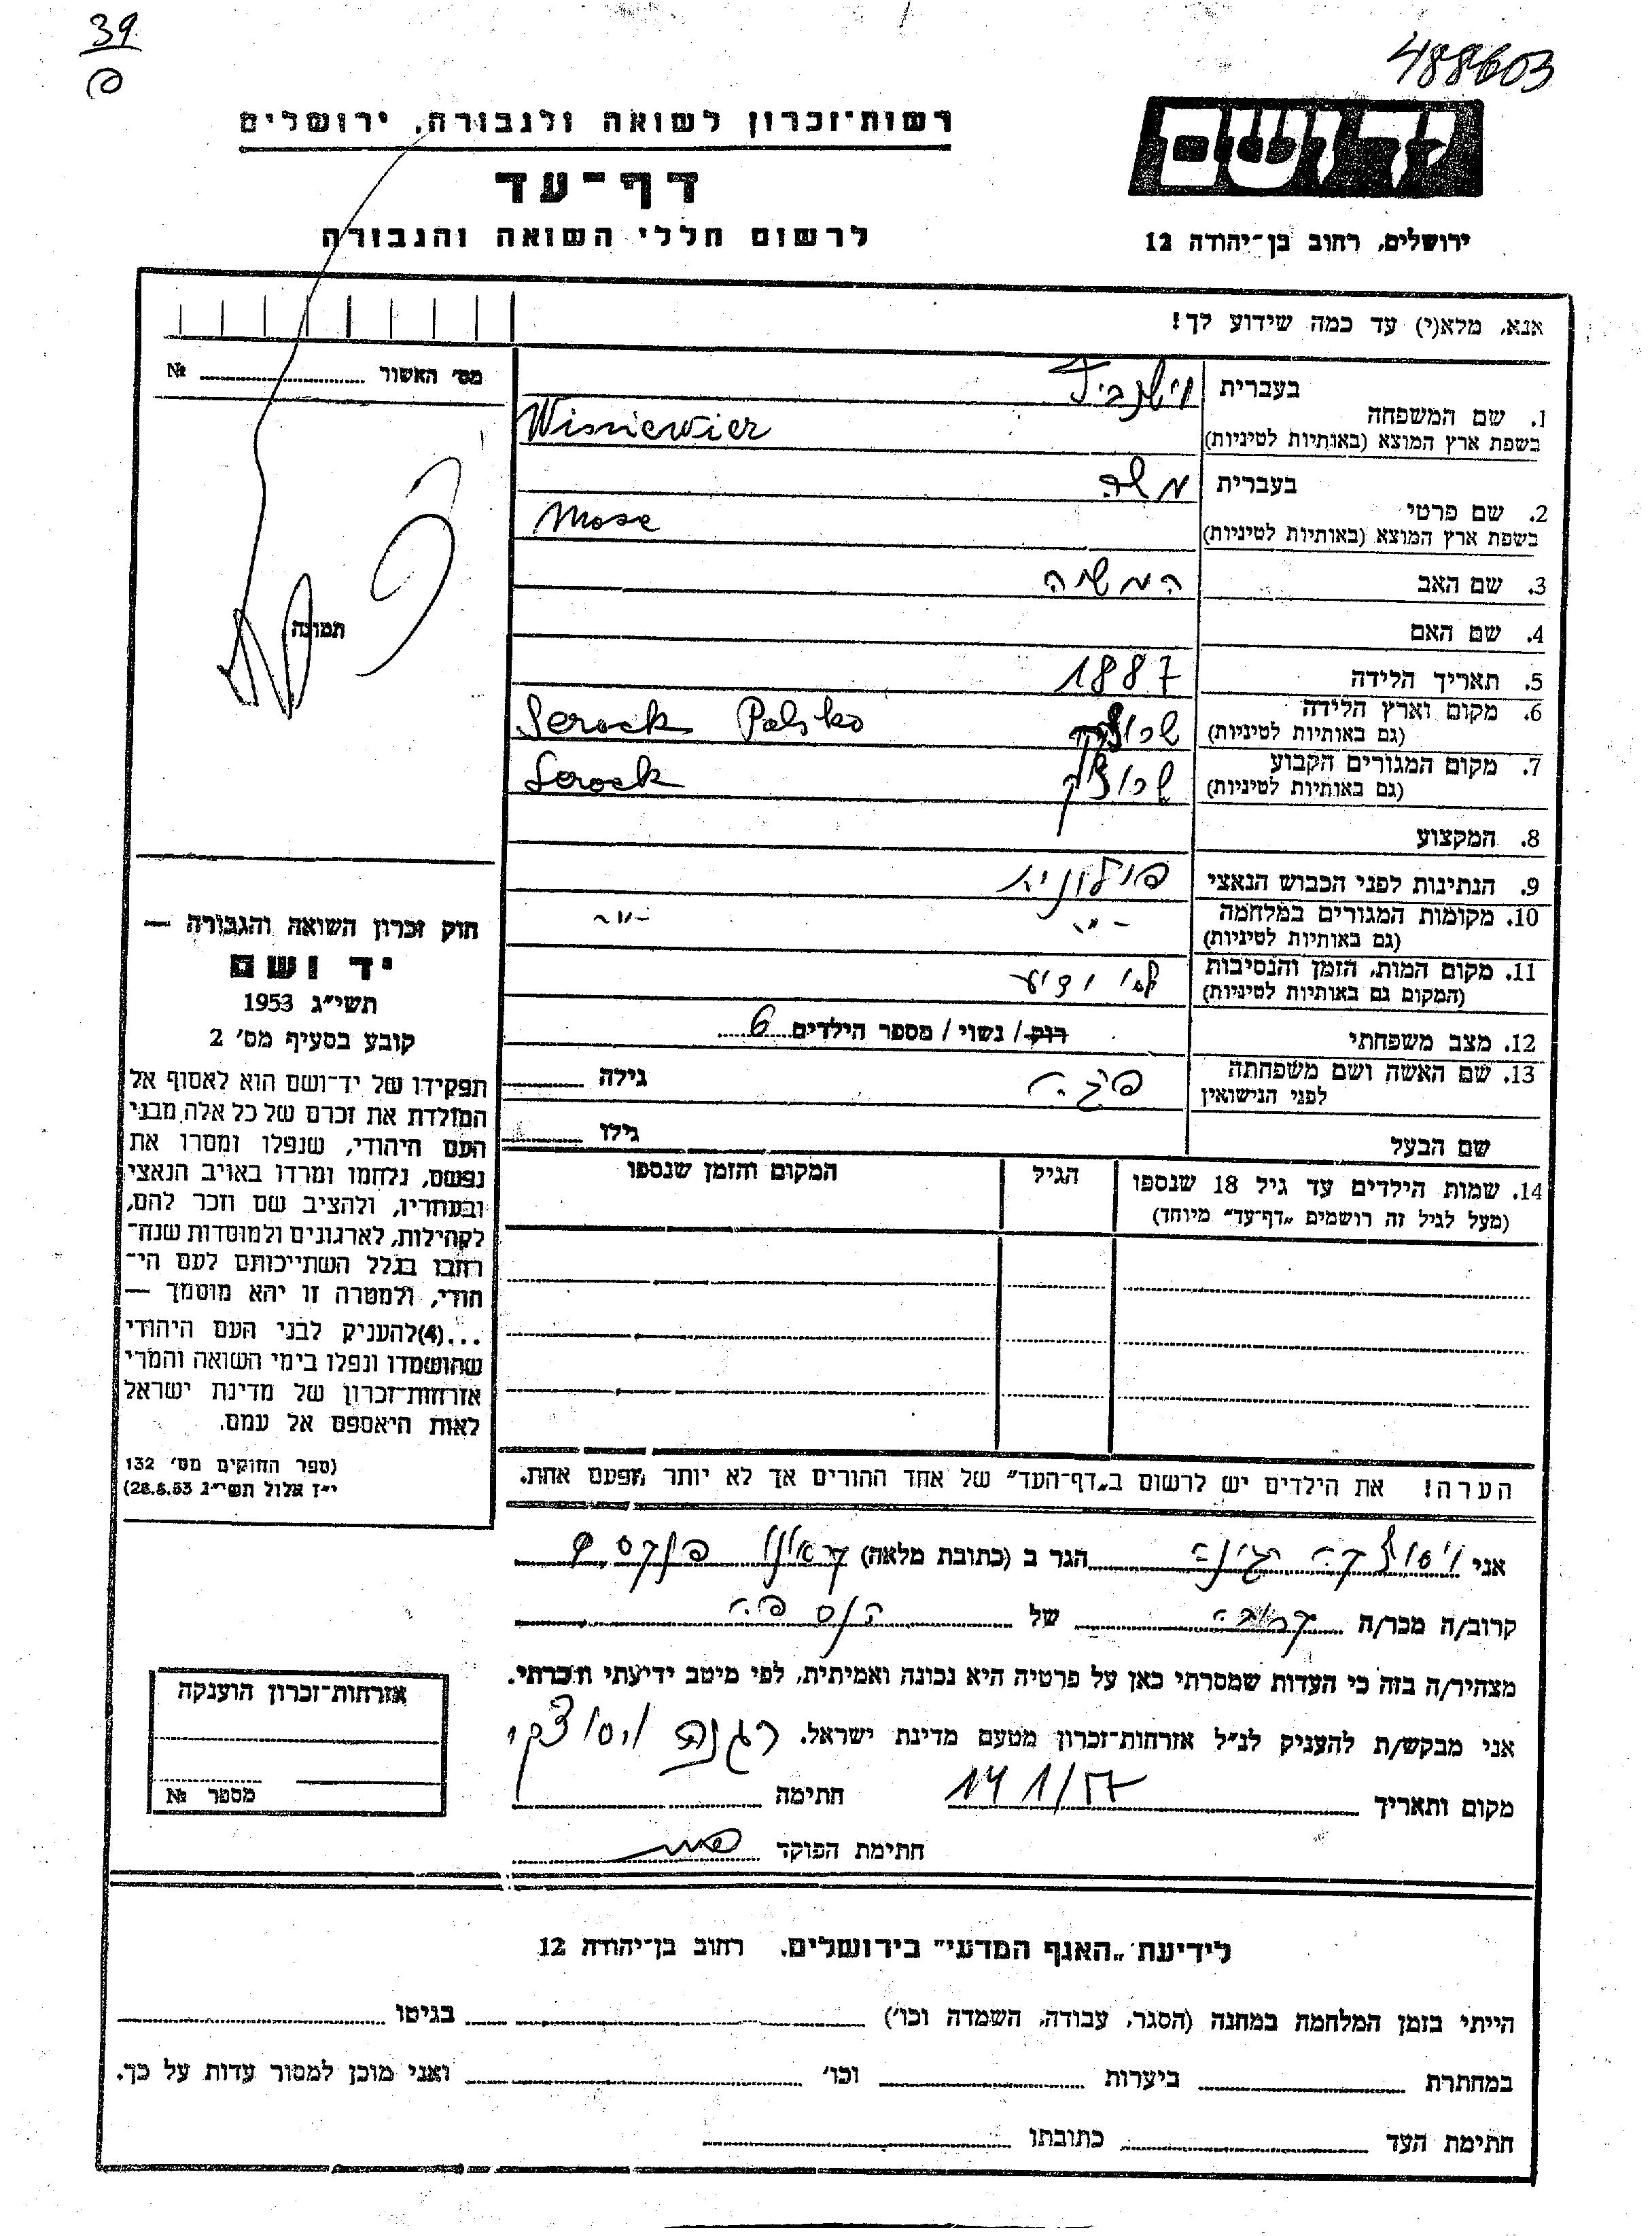 39
488603
רשות־זכרון לשואה ולגבורה, ירושלים
דף־עד
לרשום חללי השואה והגבורה
יד ושם
ירושלים, רחוב בן־יהודה 12
אנא, מלא(י) עד כמה שידוע לך!
מס' האשור № 
1. שם המשפחה
בעברית
בשפת ארץ המוצא (באותיות לטיניות) Wisniewier
2. שם פרטי
בעברית משה
בשפת ארץ המוצא (באותיות לטיניות) Mose
3. שם האב
4. שם האם
5. תאריך הלידה 1887
6. מקום וארץ הלידה
(גם באותיות לטיניות) Serock Polsko
7. מקום המגורים הקבוע
(גם באותיות לטיניות) סרוצק Serock
8. המקצוע
9. הנתינות לפני הכבוש הנאצי פולונית
10. מקומות המגורים במלחמה -"- -"-
(גם באותיות לטיניות)
11. מקום המות, הזמן והנסיבות לא ידוע
(המקום גם באותיות לטיניות)
12. מצב משפחתי רוק / נשוי / מספר הילדים 6
13. שם האשה ושם משפחתה
לפני הנישואין גילה
שם הבעל גילו
14. שמות הילדים עד גיל 18 שנספו
(מעל לגיל זה רושמים „דף־עד" מיוחד)
הגיל
המקום והזמן שנספו
הערה! את הילדים יש לרשום ב„דף־העד" של אחד ההורים אך לא יותר מפעם אחת.
תמונה
חוק זכרון השואה והגבורה —
יד ושם
תשי"ג 1953
קובע בסעיף מס' 2
תפקידו של יד־ושם הוא לאסוף אל
המולדת את זכרם של כל אלה מבני
העם היהודי, שנפלו ומסרו את
נפשם, נלחמו ומרדו באויב הנאצי
ובעוזריו, ולהציב שם וזכר להם,
לקהילות, לארגונים ולמוסדות שנח־
רבו בגלל השתייכותם לעם הי־
הודי, ולמטרה זו יהא מוסמך —
...(4)להעניק לבני העם היהודי
שהושמדו ונפלו בימי השואה והמרי
אזרחות־זכרון של מדינת ישראל
לאות היאספם אל עמם.
(ספר החוקים מס' 132
י"ז אלול תשי"ג 28.8.53)
אני הגר ב (כתובת מלאה)
קרוב/ה מכר/ה קרובה של
מצהיר/ה בזה כי העדות שמסרתי כאן על פרטיה היא נכונה ואמיתית, לפי מיטב ידיעתי והכרתי.
אני מבקש/ת להעניק לנ"ל אזרחות־זכרון מטעם מדינת ישראל.
מקום ותאריך חתימה
חתימת הפוקד
אזרחות־זכרון הוענקה
מספר №
לידיעת „האגף המדעי" בירושלים. רחוב בן־יהודה 12
הייתי בזמן המלחמה במחנה (הסגר, עבודה, השמדה וכו') בגיטו
במחתרת ביערות וכו' ואני מוכן למסור עדות על כך.
חתימת העד כתובתו